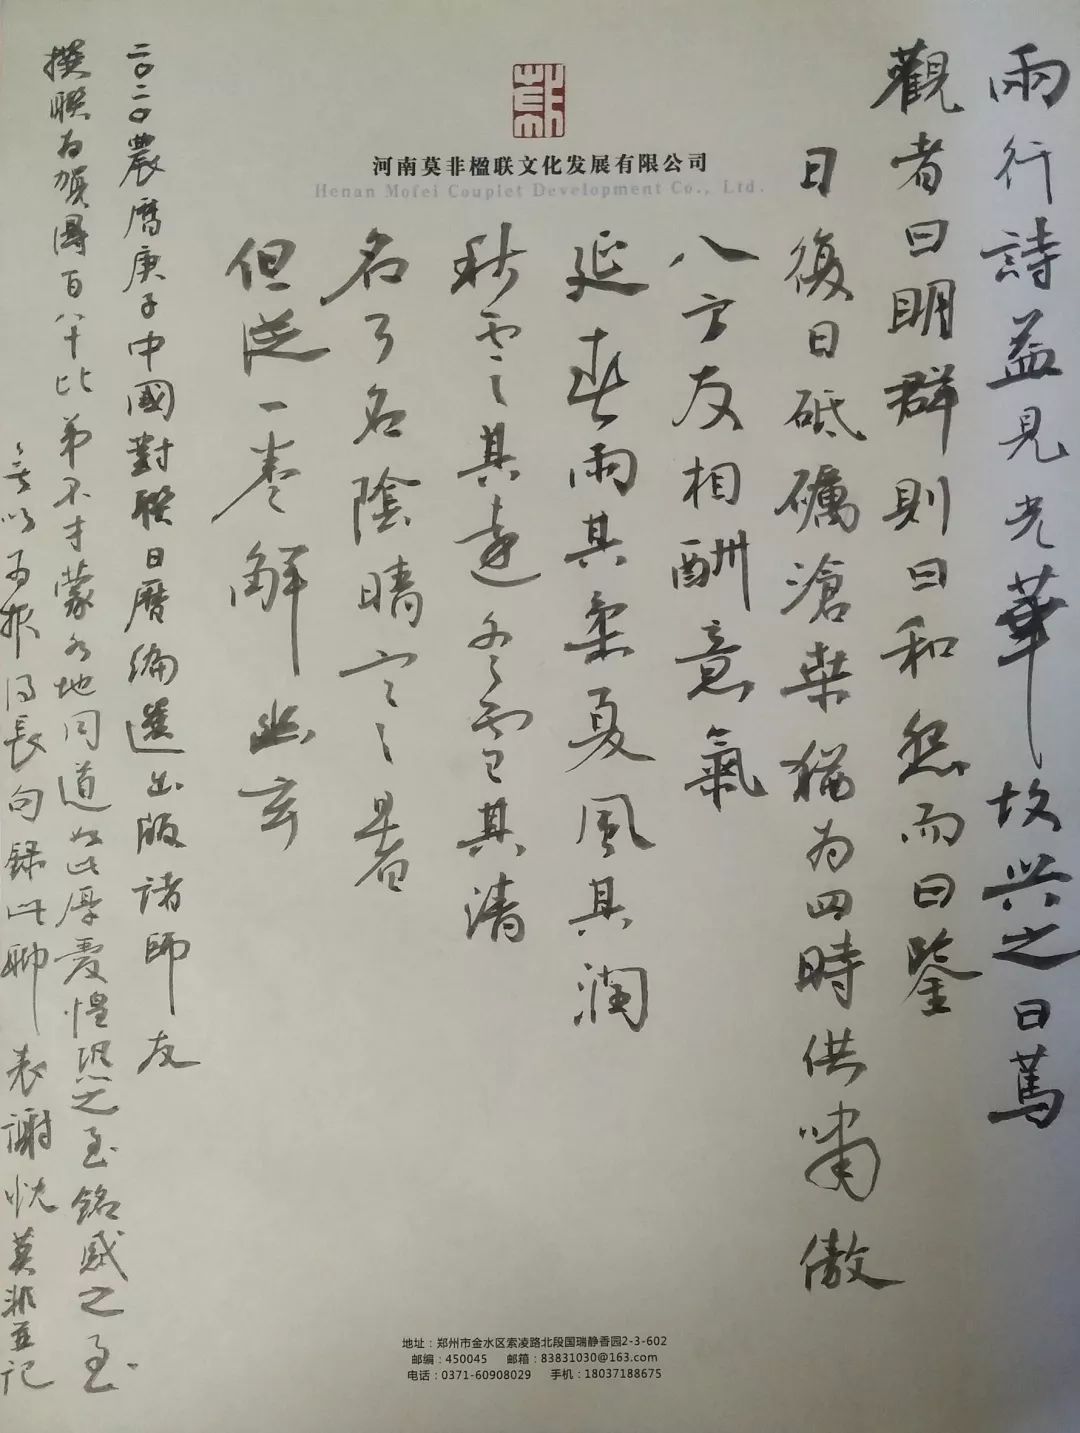 莫非
河南莫非楹联文化发展有限公司
Henan Mofei Couplet Development Co., Ltd.
雨行詩益見光華故興之曰篤
觀者曰明群則曰和怨而曰鑒
日復日砥礪滄桑猶为四時供嘯傲
八方友相酬意氣
延春雨其柔夏風其潤
秋雲其遠冬雪其清
名了名陰晴寒暑
但從一卷解幽玄
二〇二〇農曆庚子中國對聯日曆編選出版諸師友
撰聯为賀得百八十比弟不才蒙各地同道如此厚愛惶恐之至銘感之至
無以为报得長句録此聊表謝忱莫非并记
地址：郑州市金水区索凌路北段国瑞静香园2-3-602
邮编：450045 邮箱：83831030@163.com
电话：0371-60908029 手机：18037188675